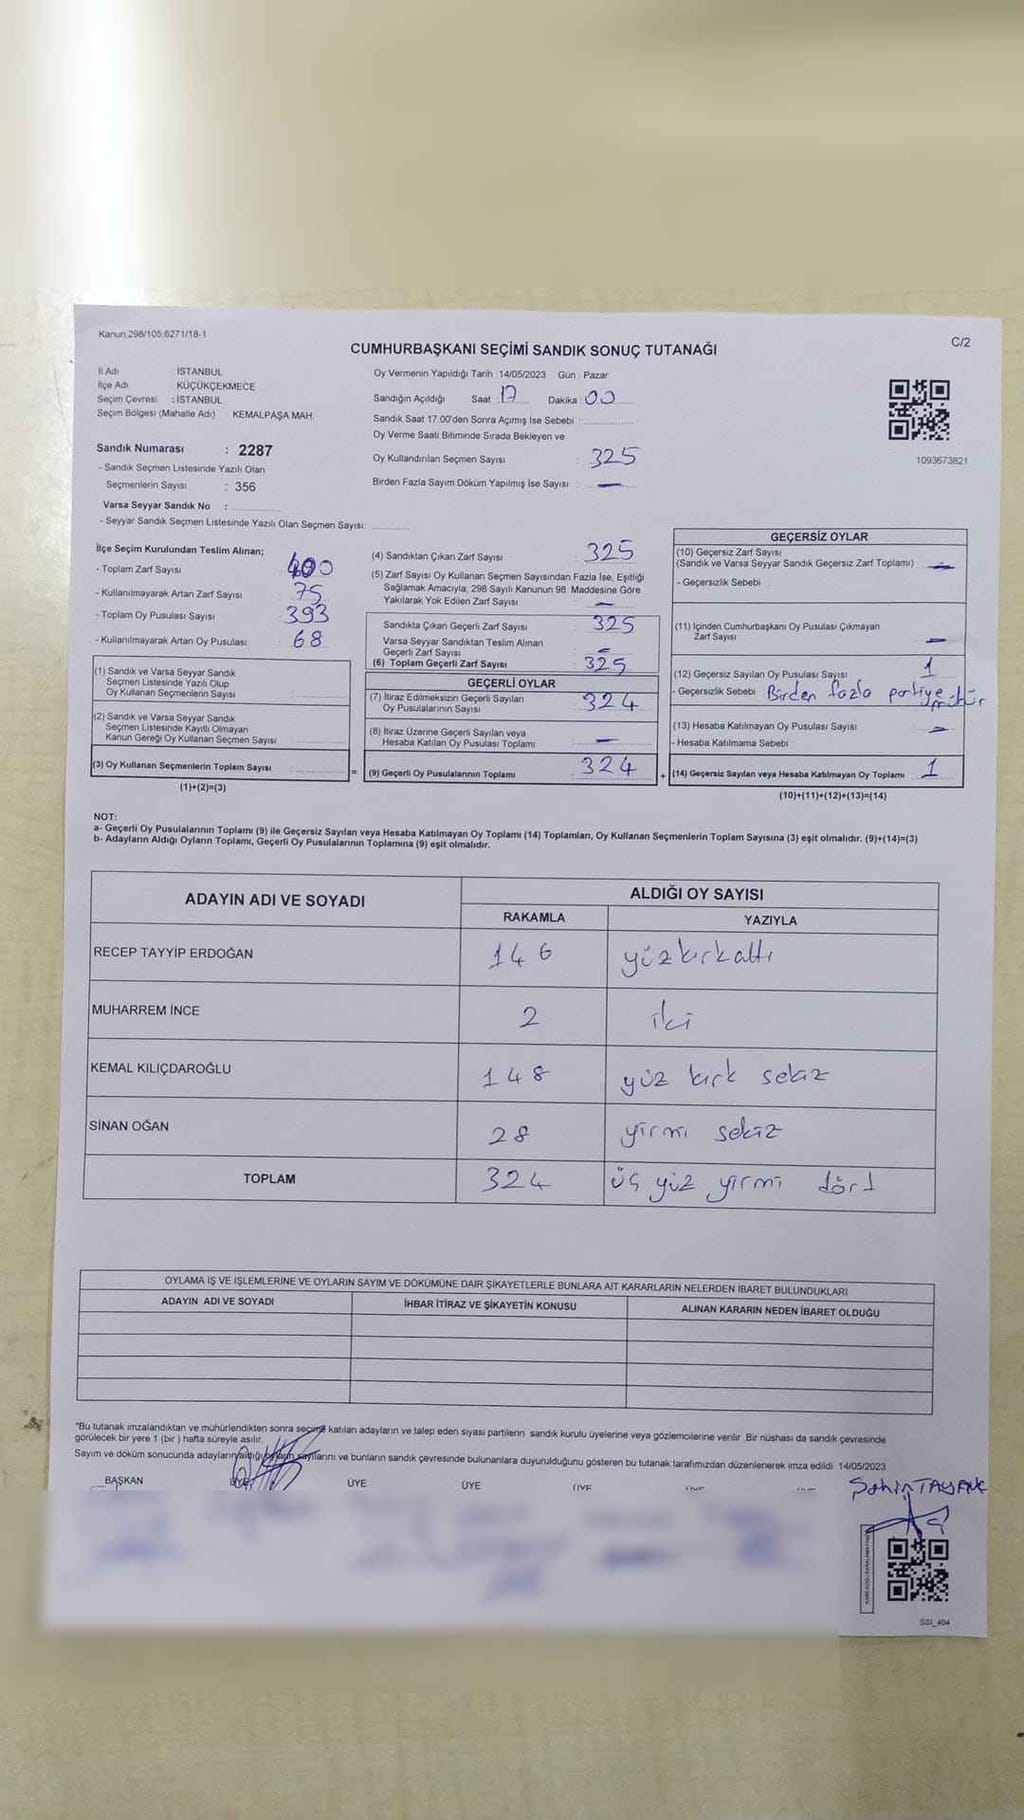 Kanun 298/105,6271/18-1
C/2
CUMHURBAŞKANI SEÇİMİ SANDIK SONUÇ TUTANAĞI
İl Adı : İSTANBUL
İlçe Adı : KÜÇÜKÇEKMECE
Seçim Çevresi : İSTANBUL
Seçim Bölgesi (Mahalle Adı) : KEMALPAŞA MAH.
Sandık Numarası : 2287
- Sandık Seçmen Listesinde Yazılı Olan
Seçmenlerin Sayısı : 356
Varsa Seyyar Sandık No :
- Seyyar Sandık Seçmen Listesinde Yazılı Olan Seçmen Sayısı:
Oy Vermenin Yapıldığı Tarih : 14/05/2023 Gün : Pazar
Sandığın Açıldığı Saat 17 Dakika : 00
Sandık Saat 17:00'den Sonra Açımış İse Sebebi :
Oy Verme Saati Bitiminde Sırada Bekleyen ve
Oy Kullandırılan Seçmen Sayısı : 325
Birden Fazla Sayım Döküm Yapılmış İse Sayısı : —
1093673821
İlçe Seçim Kurulundan Teslim Alınan;
- Toplam Zarf Sayısı : 400
- Kullanılmayarak Artan Zarf Sayısı : 75
- Toplam Oy Pusulası Sayısı : 393
- Kullanılmayarak Artan Oy Pusulası : 68
(1) Sandık ve Varsa Seyyar Sandık
Seçmen Listesinde Yazılı Olup
Oy Kullanan Seçmenlerin Sayısı
(2) Sandık ve Varsa Seyyar Sandık
Seçmen Listesinde Kayıtlı Olmayan
Kanun Gereği Oy Kullanan Seçmen Sayısı
(3) Oy Kullanan Seçmenlerin Toplam Sayısı
(1)+(2)=(3)
=
(4) Sandıktan Çıkan Zarf Sayısı : 325
(5) Zarf Sayısı Oy Kullanan Seçmen Sayısından Fazla İse, Eşitliği
Sağlamak Amacıyla, 298 Sayılı Kanunun 98. Maddesine Göre
Yakılarak Yok Edilen Zarf Sayısı : —
Sandıkta Çıkan Geçerli Zarf Sayısı : 325
Varsa Seyyar Sandıktan Teslim Alınan
Geçerli Zarf Sayısı : —
(6) Toplam Geçerli Zarf Sayısı : 325
GEÇERLİ OYLAR
(7) İtiraz Edilmeksizin Geçerli Sayılan
Oy Pusulalarının Sayısı : 324
(8) İtiraz Üzerine Geçerli Sayılan veya
Hesaba Katılan Oy Pusulası Toplamı : —
(9) Geçerli Oy Pusulalarının Toplamı : 324
+
GEÇERSİZ OYLAR
(10) Geçersiz Zarf Sayısı
(Sandık ve Varsa Seyyar Sandık Geçersiz Zarf Toplamı) : —
- Geçersizlik Sebebi :
(11) İçinden Cumhurbaşkanı Oy Pusulası Çıkmayan
Zarf Sayısı : —
(12) Geçersiz Sayılan Oy Pusulası Sayısı : 1
- Geçersizlik Sebebi : Birden fazla partiye mühür
(13) Hesaba Katılmayan Oy Pusulası Sayısı : —
- Hesaba Katılmama Sebebi :
(14) Geçersiz Sayılan veya Hesaba Katılmayan Oy Toplamı : 1
(10)+(11)+(12)+(13)=(14)
NOT:
a- Geçerli Oy Pusulalarının Toplamı (9) ile Geçersiz Sayılan veya Hesaba Katılmayan Oy Toplamı (14) Toplamları, Oy Kullanan Seçmenlerin Toplam Sayısına (3) eşit olmalıdır. (9)+(14)=(3)
b- Adayların Aldığı Oyların Toplamı, Geçerli Oy Pusulalarının Toplamına (9) eşit olmalıdır.
ADAYIN ADI VE SOYADI ALDIĞI OY SAYISI
RAKAMLA YAZIYLA
RECEP TAYYİP ERDOĞAN 146 yüzkırkaltı
MUHARREM İNCE 2 iki
KEMAL KILIÇDAROĞLU 148 yüz kırk sekiz
SİNAN OĞAN 28 yirmi sekiz
TOPLAM 324 üç yüz yirmi dört
OYLAMA İŞ VE İŞLEMLERİNE VE OYLARIN SAYIM VE DÖKÜMÜNE DAİR ŞİKAYETLERLE BUNLARA AİT KARARLARIN NELERDEN İBARET BULUNDUKLARI
ADAYIN ADI VE SOYADI İHBAR İTİRAZ VE ŞİKAYETİN KONUSU ALINAN KARARIN NEDEN İBARET OLDUĞU
*Bu tutanak imzalandıktan ve mühürlendikten sonra seçime katılan adayların ve talep eden siyasi partilerin sandık kurulu üyelerine veya gözlemcilerine verilir. Bir nüshası da sandık çevresinde
görülecek bir yere 1 (bir) hafta süreyle asılır.
Sayım ve döküm sonucunda adayların aldığı oyların sayılarını ve bunların sandık çevresinde bulunanlara duyurulduğunu gösteren bu tutanak tarafımızdan düzenlenerek imza edildi. 14/05/2023
BAŞKAN ÜYE ÜYE ÜYE ÜYE
SSI_404